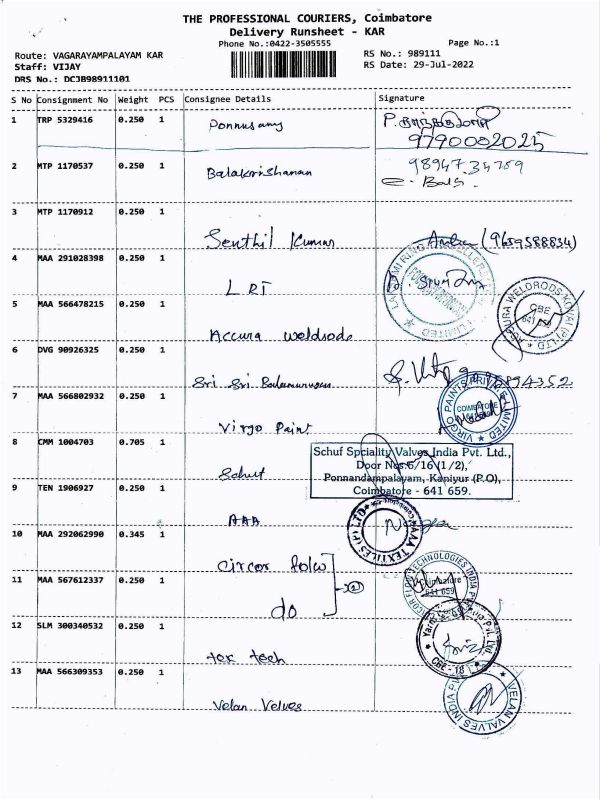 THE PROFESSIONAL COURIERS, Coimbatore
Delivery Runsheet - KAR
Phone No.:0422-3505555
Page No.:1
Route: VAGARAYAMPALAYAM KAR
RS No.: 989111
Staff: VIJAY
RS Date: 29-Jul-2022
DRS No.: DCJB98911101
S No Consignment No Weight PCS Consignee Details Signature
1 TRP 5329416 0.250 1 Ponnusamy P.
9790002025
2 MTP 1170537 0.250 1 Balakrishanan 98947 34789
e. Bals.
3 MTP 1170912 0.250 1 Senthil Kumar (9659588834)
4 MAA 291028398 0.250 1 LRT
5 MAA 566478215 0.250 1 Accura weldrods
ACCURA WELDRODS KOVAI (P) LTD
CBE
641 659
6 DVG 90926325 0.250 1 Sri Sri Balamurugan
7 MAA 566802932 0.250 1 Virgo Paint
VIRGO PAINTS PRIVATE LIMITED
COIMBATORE
8 CMM 1004703 0.705 1 Schuf
Schuf Spciality Valves India Pvt. Ltd.,
Door Nos.5/16 (1/2),
Ponnandampalayam, Kaniyur (P.O),
Coimbatore - 641 659.
9 TEN 1906927 0.250 1 AAA
AAA TEXTILES (P) LTD
10 MAA 292062990 0.345 1 Circor flow
11 MAA 567612337 0.250 1 do
2
TECHNOLOGIES INDIA
Coimbatore
641 659
12 SLM 300340532 0.250 1 tex tech
CBE - 18
13 MAA 566309353 0.250 1 Velan Velves
VELAN VALVES INDIA